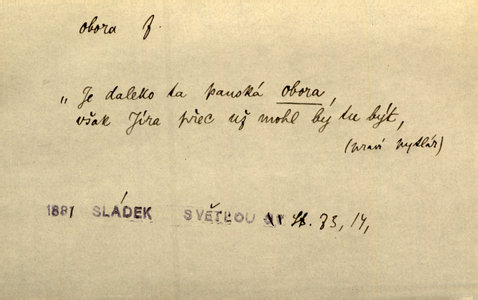 obora f.
„Je daleko ta panská obora,
však Jíra přec už mohl by tu být,
(praví pytlák)
1881 SLÁDEK SVĚTLOU 33, 14,